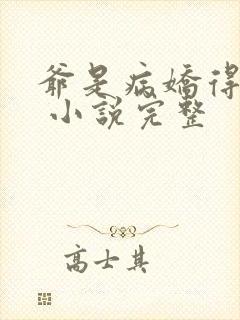 爷是病嬌得
小說完整
高士其